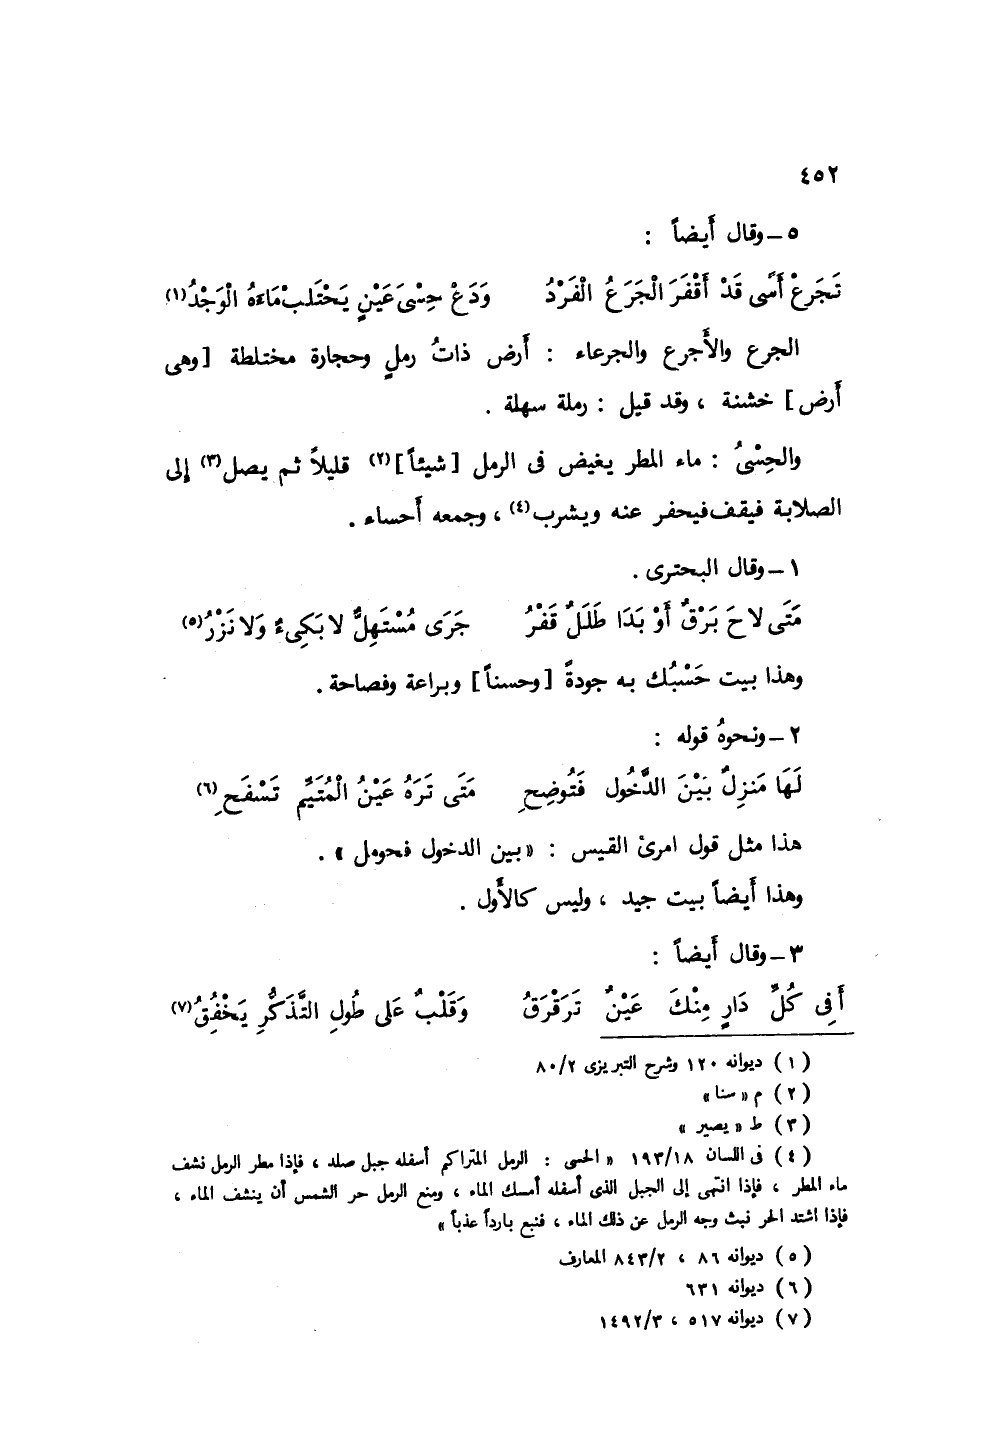 ٤٥٢
٥ – وقال أَيضاً :
تَجَرعْ أَسًى قَدْ أَقْفَرَ الْجَرَعُ الْفَرْدُ وَدَعْ حِسْىَ عَيْنٍ يَحْتَلبْ مَاءَهُ الْوَجْدُ(١)
الجرع والأَجرع والجرعاء : أَرض ذاتُ رملٍ وحجارة مختلطة [وهى
أَرض] خشنة ، وقد قيل : رملة سهلة .
والحِسْىُ : ماء المطر يغيض فى الرمل [شيئاً](٢) قليلاً ثم يصل(٣) إلى
الصلابة فيقف فيحفر عنه ويشرب(٤) ، وجمعه أَحساء .
١ – وقال البحترى .
مَتَى لاحَ بَرْقٌ أَوْ بَدَا طَلَلٌ قَفْرُ جَرَى مُسْتَهِلٌّ لا بَكِىءٌ وَلا نَزْرُ(٥)
وهذا بيت حَسْبُك به جودةً [وحسناً] وبراعة وفصاحة .
٢ – ونحوهُ قوله :
لَهَا مَنزِلٌ بَيْنَ الدَّخُول فَتُوضِحِ مَتَى تَرَهُ عَيْنُ الْمُتَيَّمِ تَسْفَحِ(٦)
هذا مثل قول امرئ القيس : «بين الدخول فحومل » .
وهذا أَيضاً بيت جيد ، وليس كالأَول .
٣ – وقال أَيضاً :
أَفِى كُلِّ دَارٍ مِنْكَ عَيْنٌ تَرَقْرَقُ وَقَلْبٌ عَلى طُولِ التَّذَكُّرِ يَخْفُقُ(٧)
(١) ديوانه ١٢٠ وشرح التبريزى ٨٠/٢
(٢) م « سنا »
(٣) ط « يصير »
(٤) فى اللسان ١٩٣/١٨ « الحسى : الرمل المتراكم أسفله جبل صلد ، فإذا مطر الرمل نشف
ماء المطر ، فإذا انتهى إلى الجبل الذى أسفله أمسك الماء ، ومنع الرمل حر الشمس أن ينشف الماء ،
فإذا اشتد الحر نبث وجه الرمل عن ذلك الماء ، فنبع بارداً عذباً »
(٥) ديوانه ٨٦ ، ٨٤٣/٢ المعارف
(٦) ديوانه ٦٣١
(٧) ديوانه ٥١٧ ، ١٤٩٢/٣